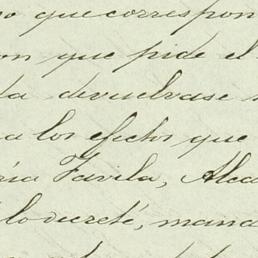 o que correspon
on que pide el
ta devuelvase
a los efectos que
ría Favila, Alca
lo decreté, mana